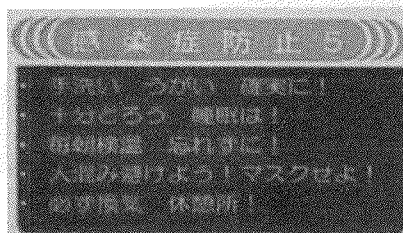 感染症防止5
・手洗い うがい 確実に!
・十分とろう 睡眠は!
・毎朝検温 忘れずに!
・人混み避けよう!マスクせよ!
・必ず換気 休憩所!